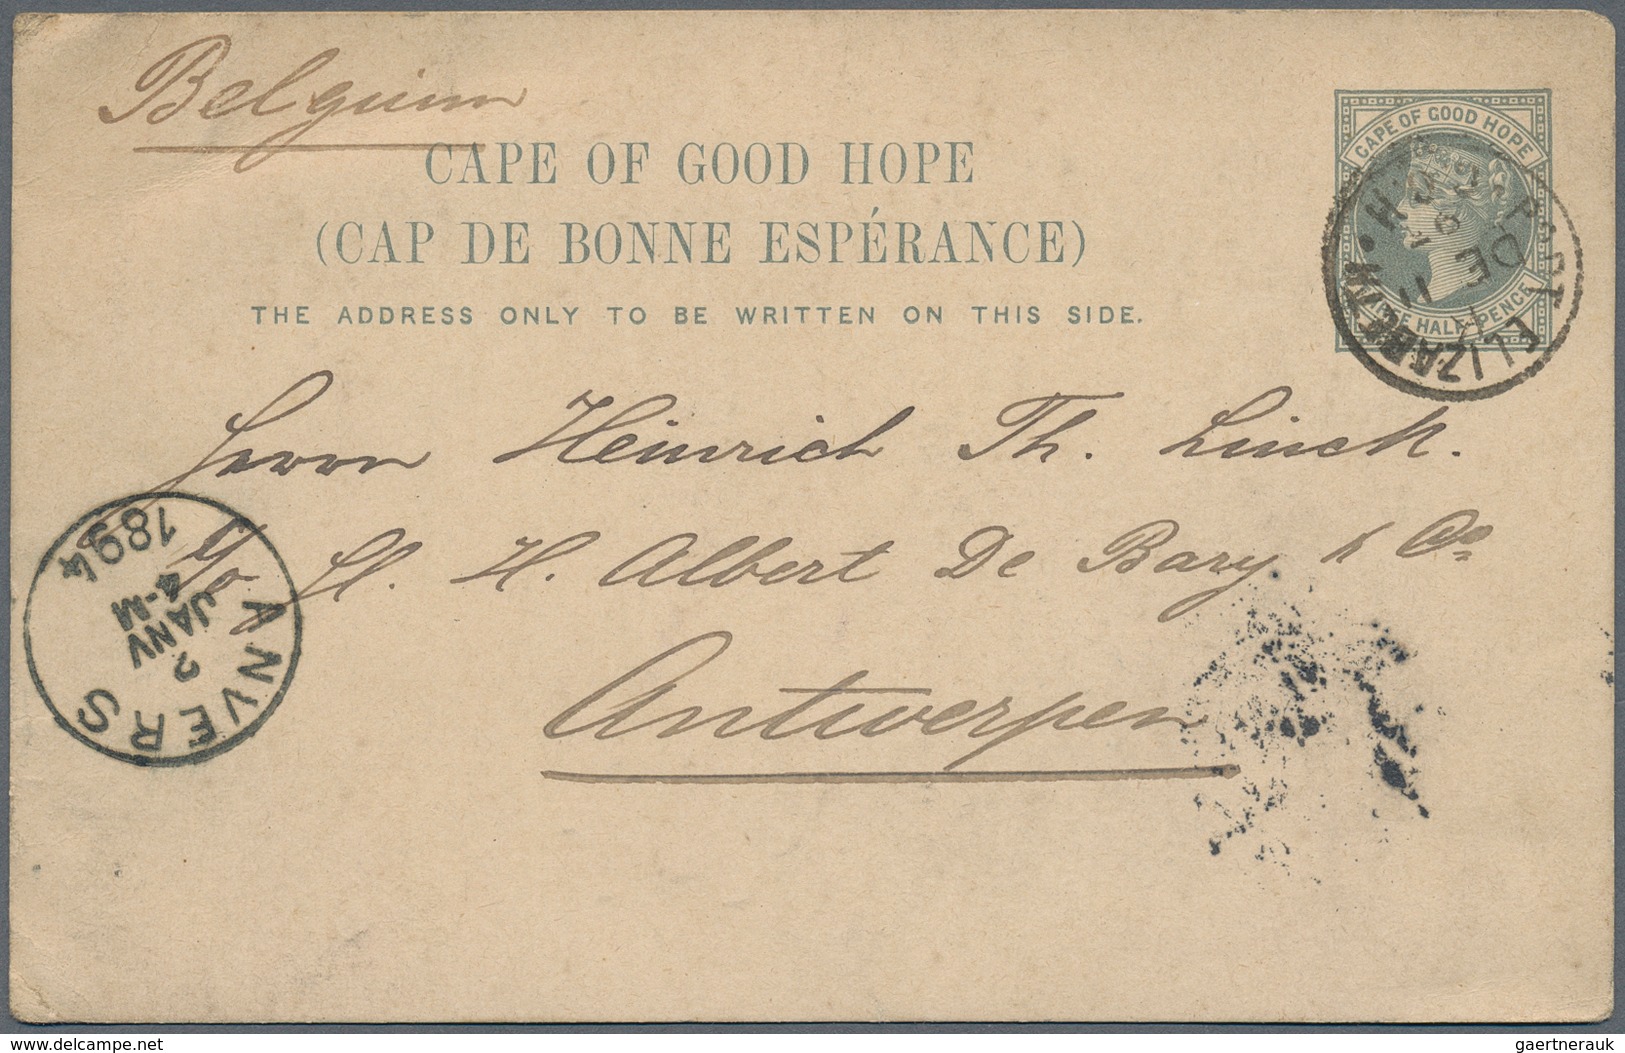 Belgium
CAPE OF GOOD HOPE
(CAP DE BONNE ESPÉRANCE)
THE ADDRESS ONLY TO BE WRITTEN ON THIS SIDE.
CAPE OF GOOD HOPE
HALF PENCE
PORT ELIZABETH • C.G.H.
11
DE
Herrn Heinrich Th. Linck.
c/o. H. Albert De Bary & Co
Antwerpen
ANVERS
2
JANV
4-M
1894
delcampe.net
gaertnerauk